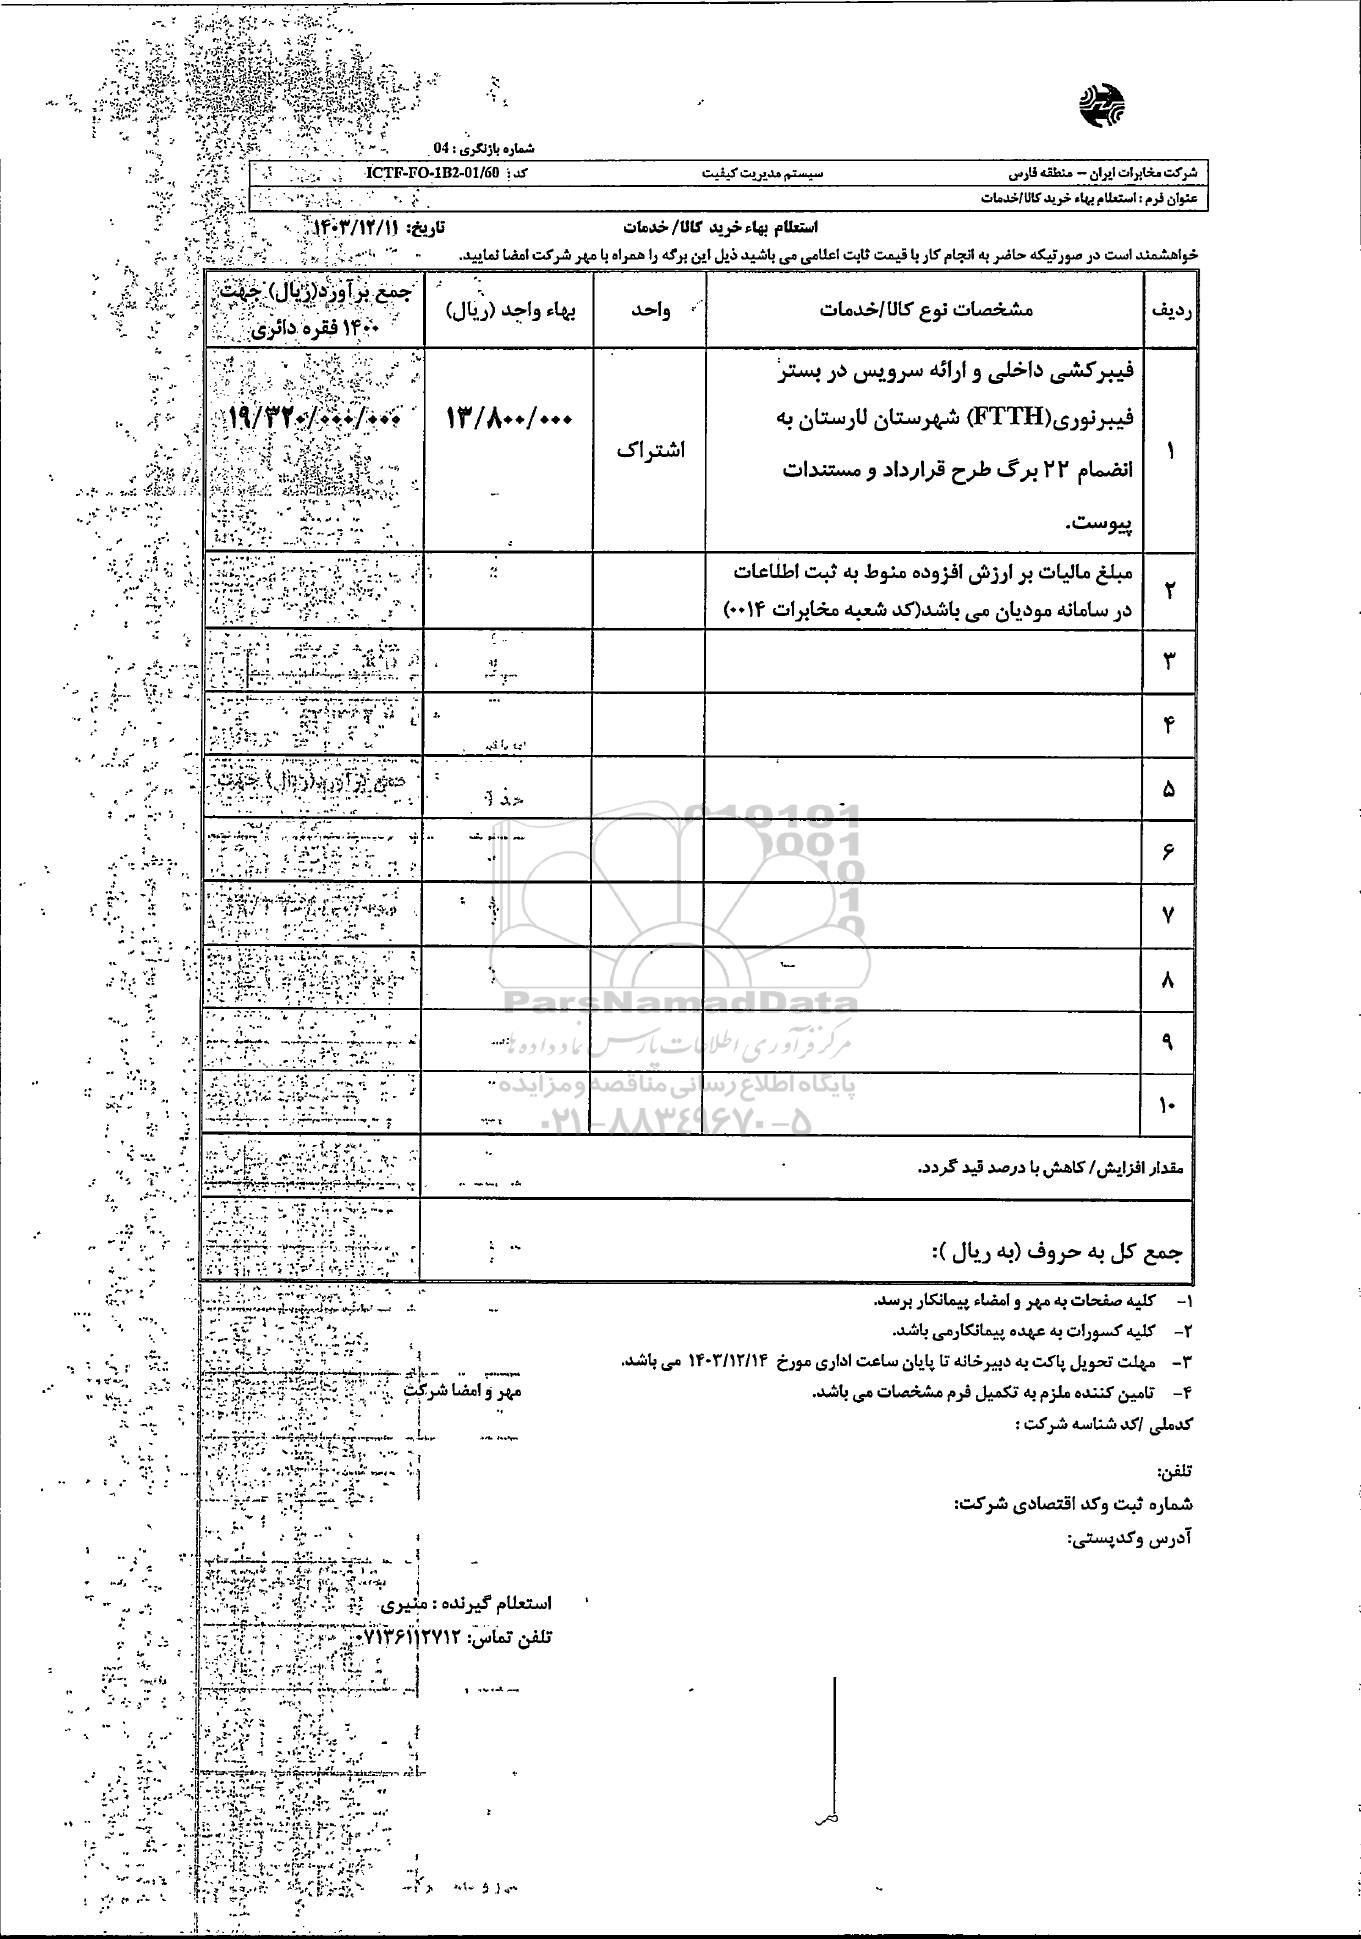 شماره بازنگری : 04
شرکت مخابرات ایران – منطقه فارس
سیستم مدیریت کیفیت
کد : ICTF-FO-1B2-01/60
عنوان فرم : استعلام بهاء خرید کالا/خدمات
استعلام بهاء خرید کالا/ خدمات
تاریخ: ۱۴۰۳/۱۲/۱۱
خواهشمند است در صورتیکه حاضر به انجام کار با قیمت ثابت اعلامی می باشید ذیل این برگه را همراه با مهر شرکت امضا نمایید.
ردیف
مشخصات نوع کالا/خدمات
واحد
بهاء واحد (ریال)
جمع برآورد(ریال) جهت
۱۴۰۰ فقره دائری
۱
فیبرکشی داخلی و ارائه سرویس در بستر
فیبرنوری(FTTH) شهرستان لارستان به
انضمام ۲۲ برگ طرح قرارداد و مستندات
پیوست.
اشتراک
۱۳/۸۰۰/۰۰۰
۱۹/۳۲۰/۰۰۰/۰۰۰
۲
مبلغ مالیات بر ارزش افزوده منوط به ثبت اطلاعات
در سامانه مودیان می باشد(کد شعبه مخابرات ۰۰۱۴)
۳
۴
۵
جمع برآورد(ریال) جهت
۶
۷
۸
۹
۱۰
ParsNamadData
مرکز فرآوری اطلاعات پارس نماد داده ها
پایگاه اطلاع رسانی مناقصه و مزایده
۰۲۱-۸۸۳۴۹۶۷۰-۵
مقدار افزایش/ کاهش با درصد قید گردد.
جمع کل به حروف (به ریال ):
۱- کلیه صفحات به مهر و امضاء پیمانکار برسد.
۲- کلیه کسورات به عهده پیمانکارمی باشد.
۳- مهلت تحویل پاکت به دبیرخانه تا پایان ساعت اداری مورخ ۱۴۰۳/۱۲/۱۴ می باشد.
۴- تامین کننده ملزم به تکمیل فرم مشخصات می باشد.
مهر و امضا شرکت
کدملی /کد شناسه شرکت :
تلفن:
شماره ثبت وکد اقتصادی شرکت:
آدرس وکدپستی:
استعلام گیرنده : منیری
تلفن تماس: ۰۷۱۳۶۱۱۲۷۱۲